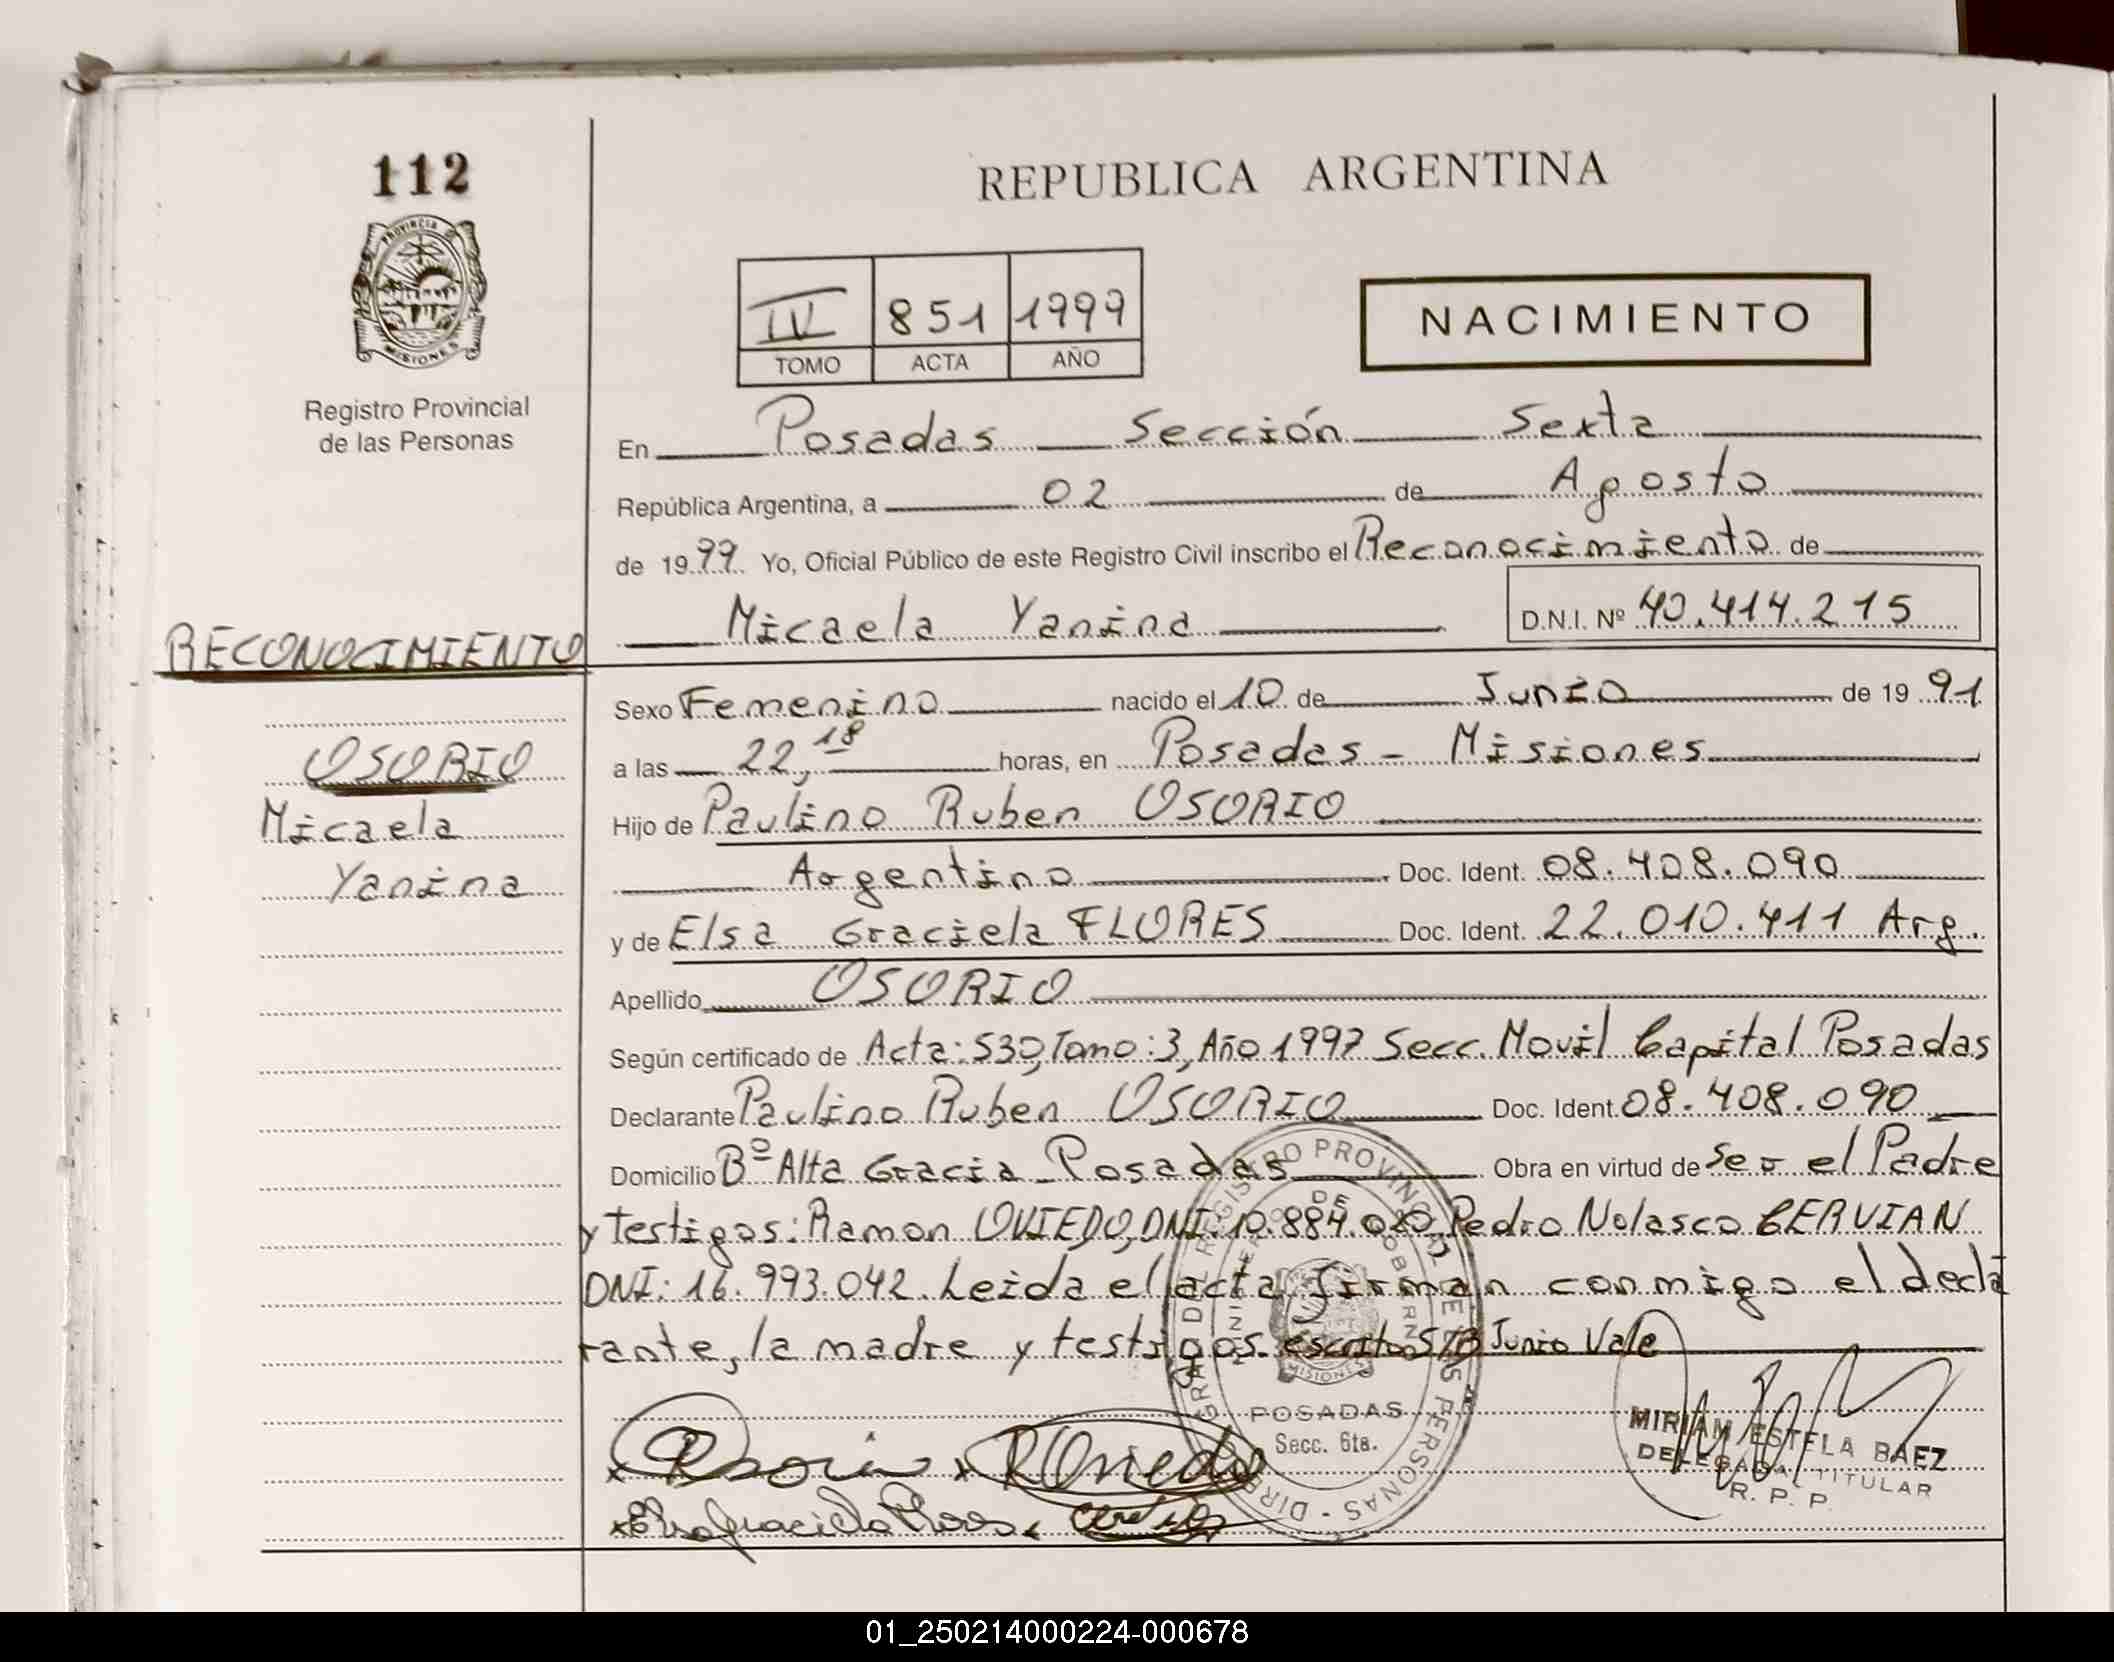 112
PROVINCIA
MISIONES
Registro Provincial
de las Personas
REPUBLICA ARGENTINA
IV 851 1999
TOMO ACTA AÑO
NACIMIENTO
En Posadas Sección Sexta
República Argentina, a 02 de Agosto
de 1999 Yo, Oficial Público de este Registro Civil inscribo el Reconocimiento de
Micaela Yanina D.N.I. Nº 40.414.215
RECONOCIMIENTO
OSORIO
Micaela
Yanina
Sexo Femenino nacido el 10 de Junio de 19 91
a las 22,18 horas, en Posadas - Misiones
Hijo de Paulino Ruben OSORIO
Argentino Doc. Ident. 08.408.090
y de Elsa Graciela FLORES Doc. Ident. 22.010.411 Arg.
Apellido OSORIO
Según certificado de Acta: 530, Tomo: 3, Año 1997 Secc. Movil Capital Posadas
Declarante Paulino Ruben OSORIO Doc. Ident. 08.408.090
Domicilio Bº Alta Gracia - Posadas Obra en virtud de ser el Padre
y testigos: Ramon OVIEDO, DNI: 10.884. Pedro Nolasco CERVIAN
DNI: 16.993.042. Leida el acta firman conmigo el decla
rante, la madre y testigos. escrito S/B Junio Vale
POSADAS
Secc. 6ta.
MISIONES
MIRIAM ESTELA BAEZ
DELEGADA TITULAR
R. P. P.
01_250214000224-000678